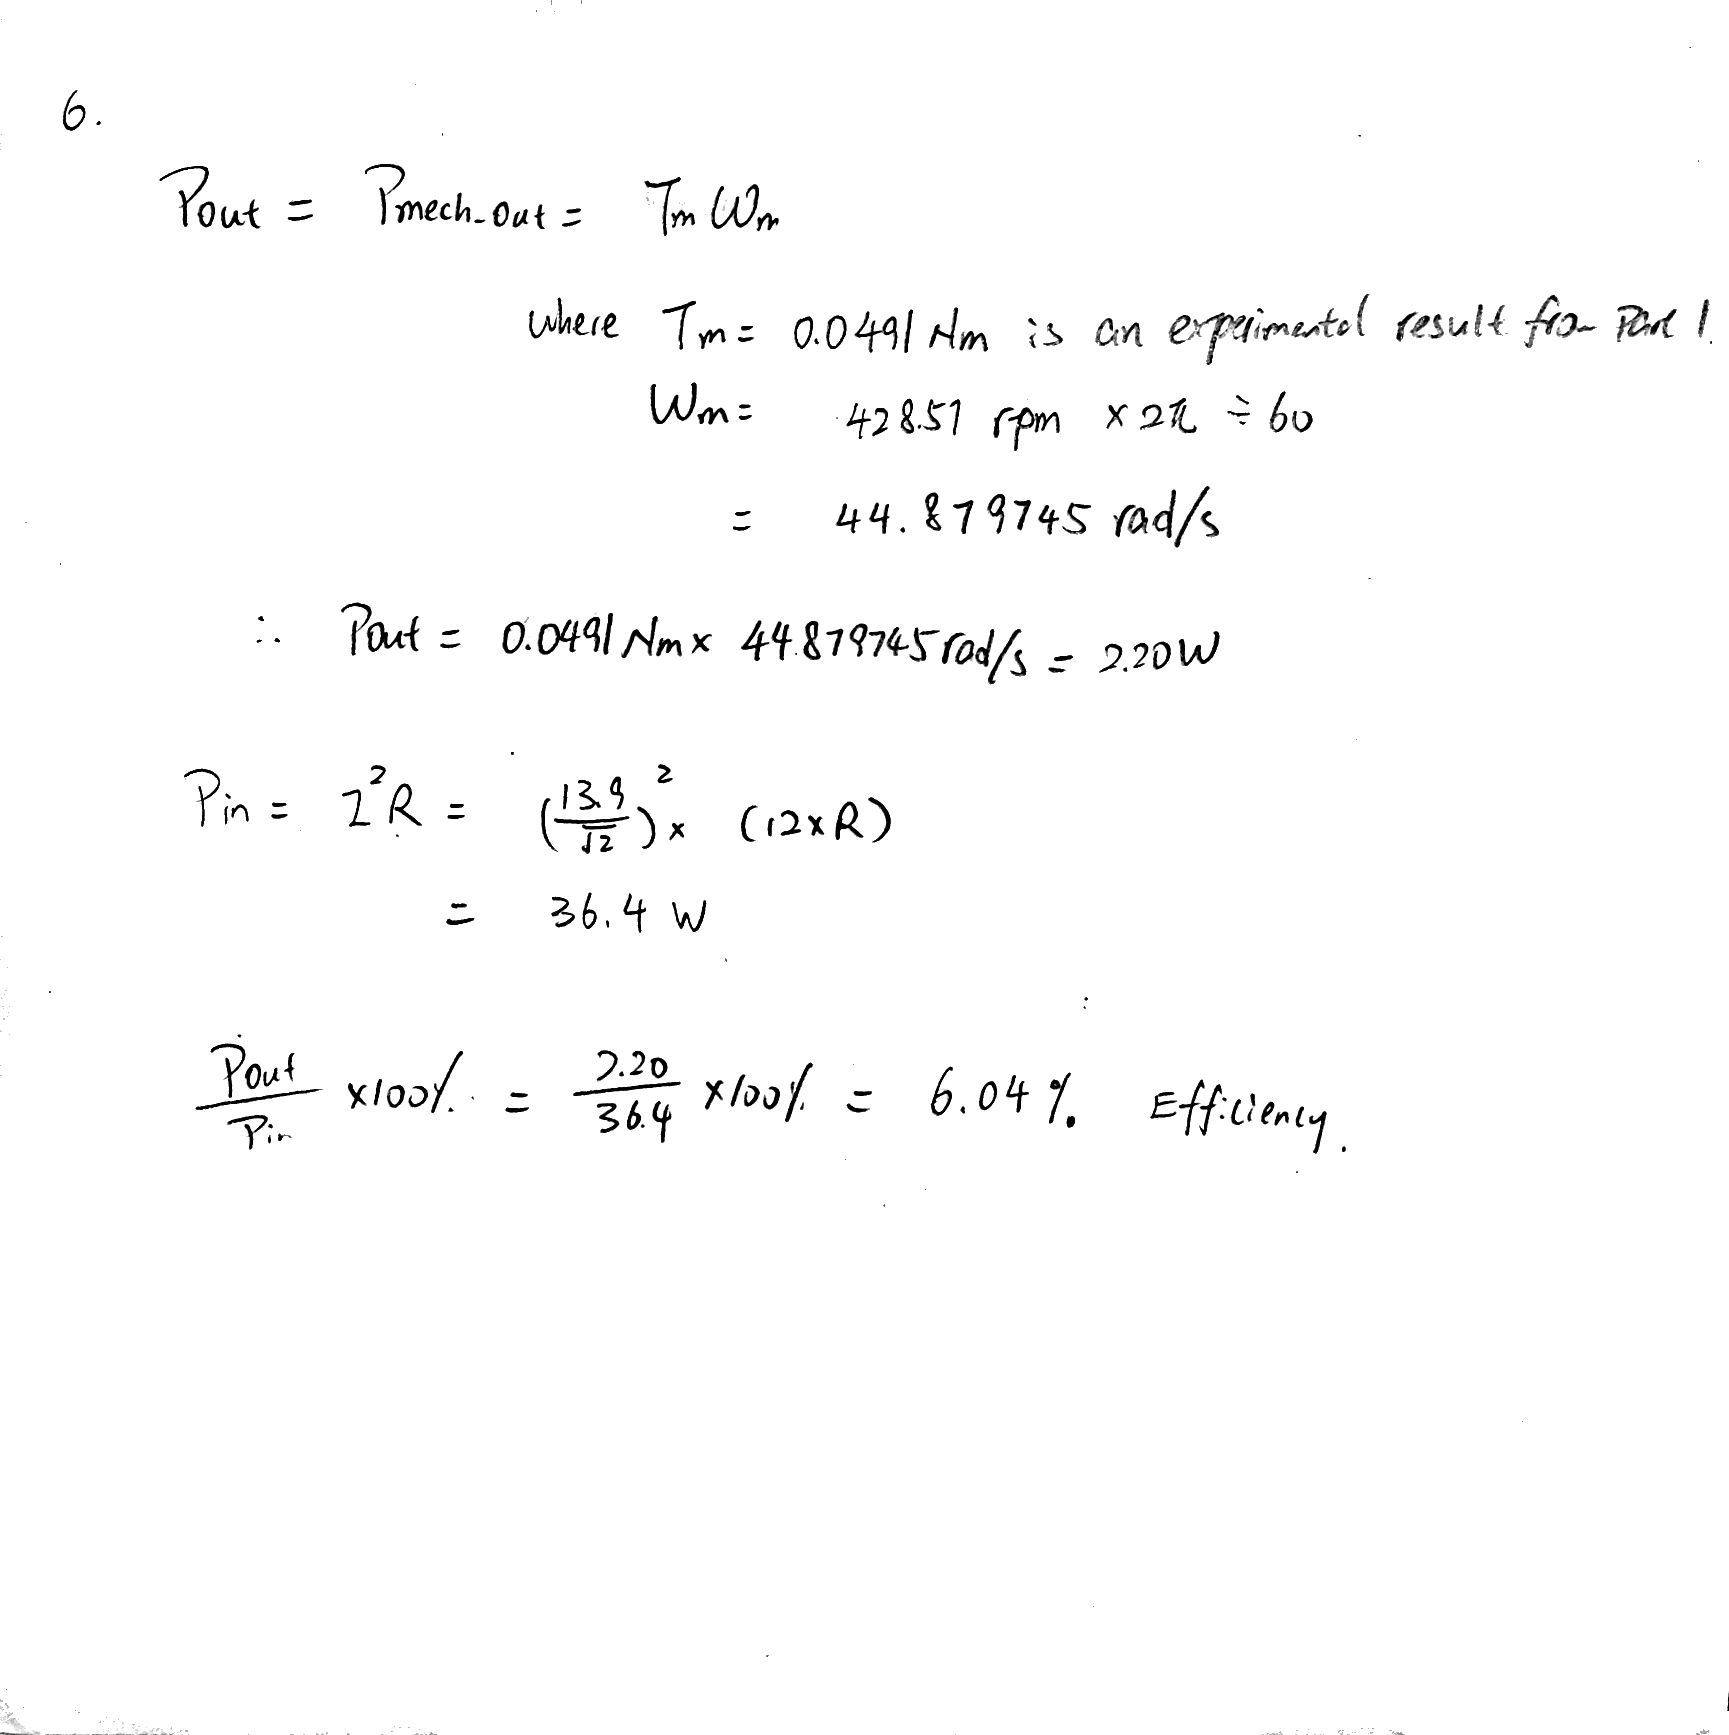 6.
Pout = Pmech-out = Tm Wm
where Tm = 0.0491 Nm is an experimental result from Part 1.
Wm = 428.57 rpm × 2π ÷ 60
= 44.879745 rad/s
∴ Pout = 0.0491 Nm × 44.879745 rad/s = 2.20W
Pin = I²R = (13.9/√2)² × (12×R)
= 36.4 W
Pout/Pin ×100% = 2.20/36.4 ×100% = 6.04% Efficiency.